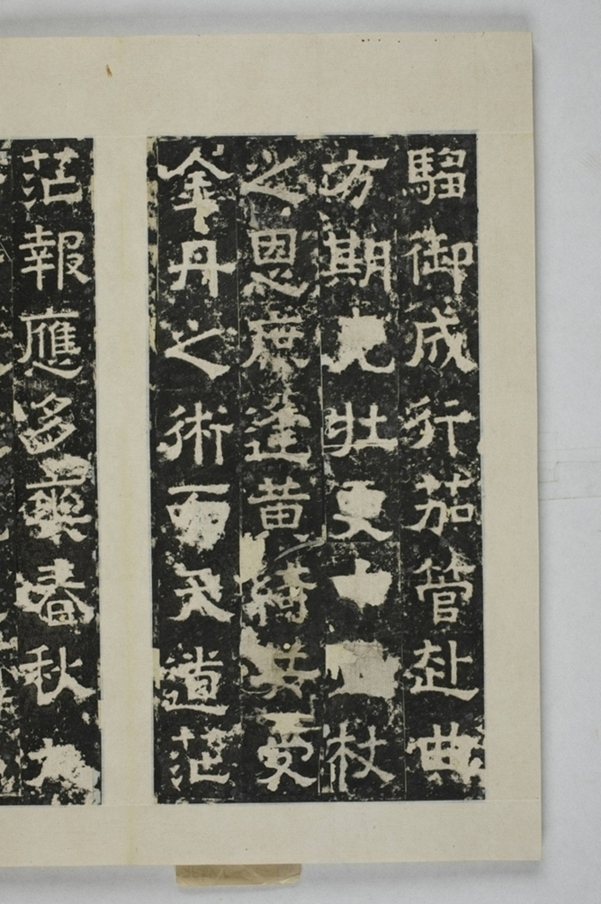 騶御成行茄管赴曲
方期克壯更杖
之恩庶逢黄綺共受
金丹之術而天道茫
茫報應多爽春秋